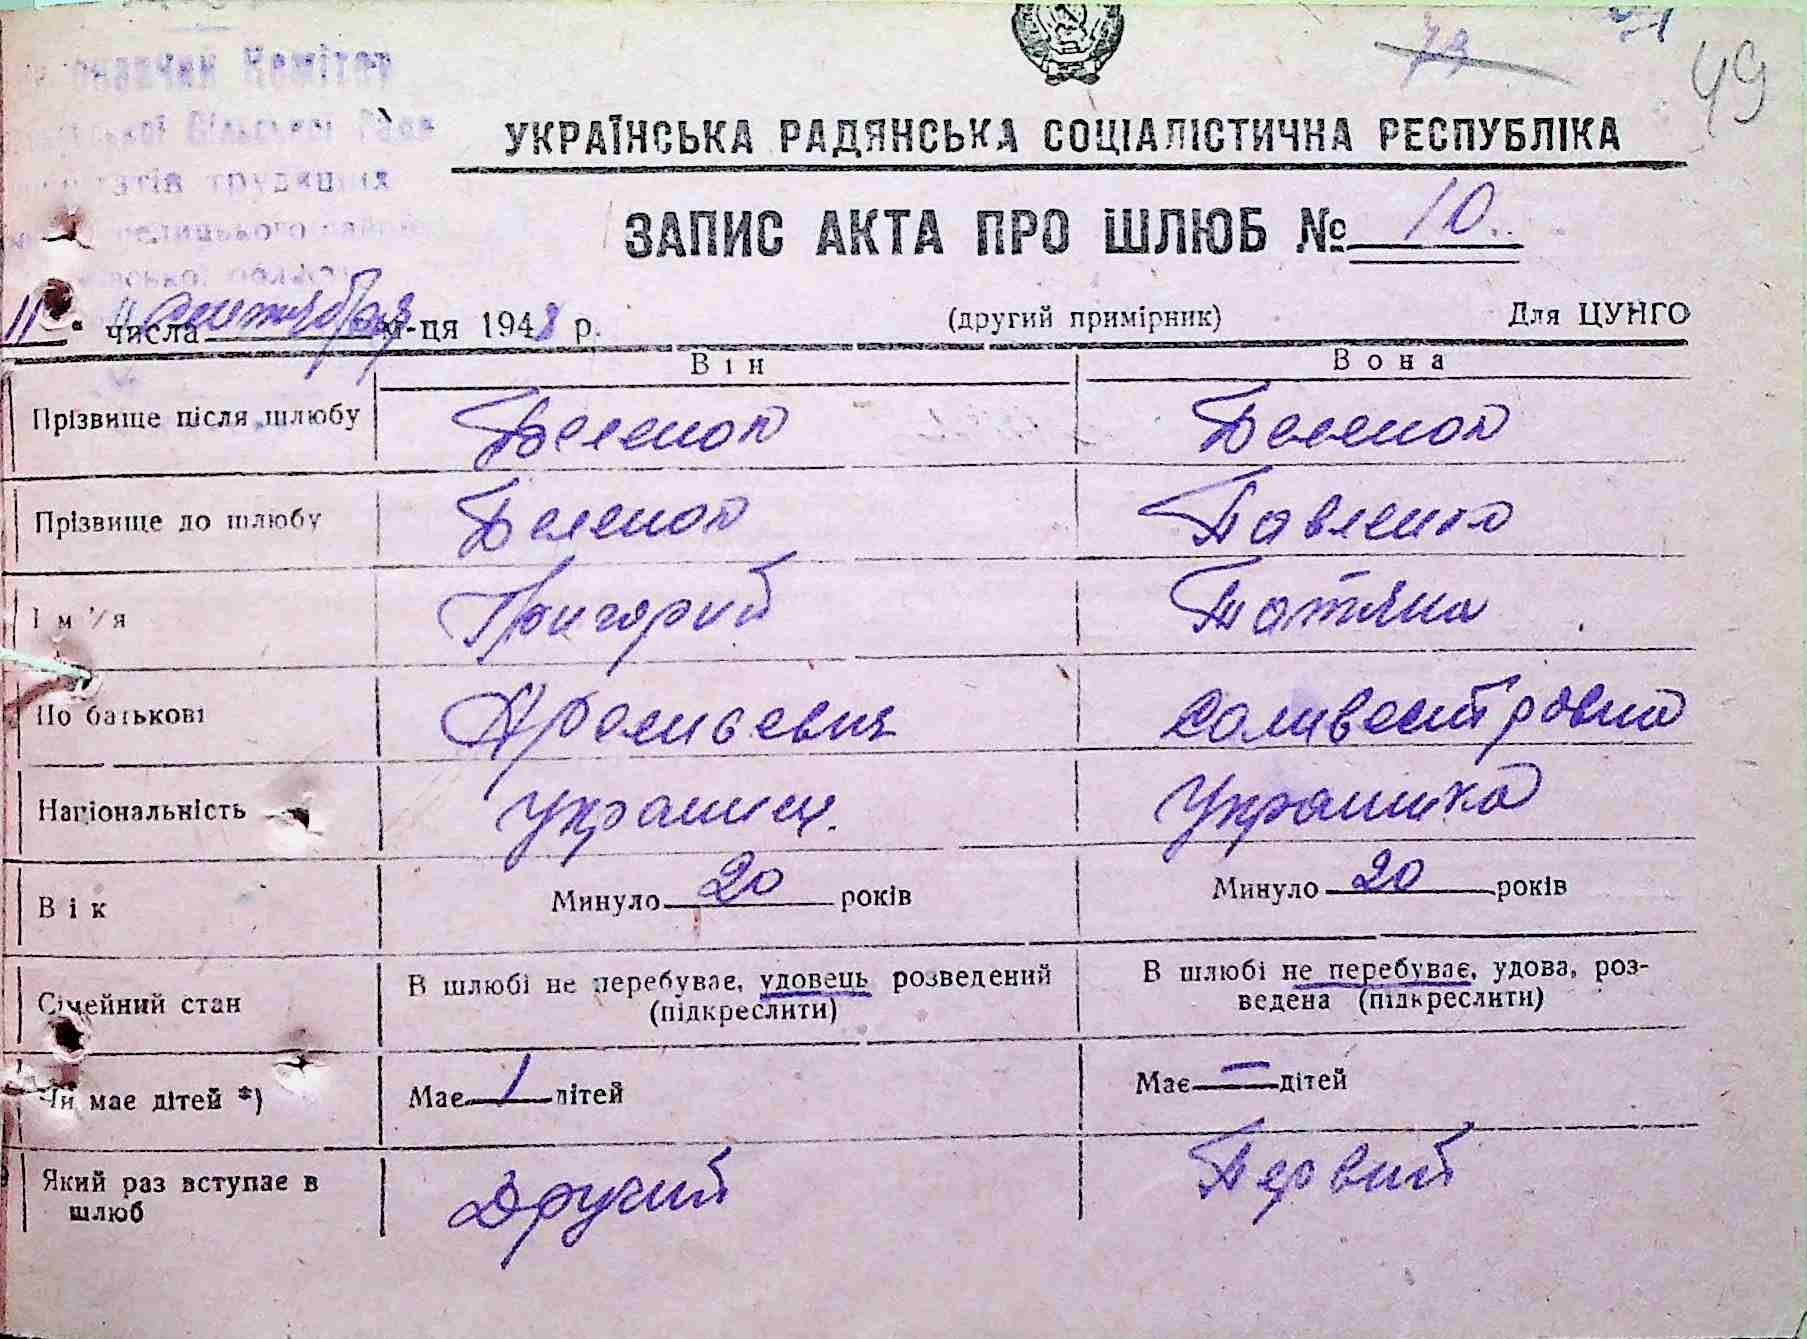 Комітет
Сільської Ради
трудящих
УКРАЇНСЬКА РАДЯНСЬКА СОЦІАЛІСТИЧНА РЕСПУБЛІКА
73
49
ЗАПИС АКТА ПРО ШЛЮБ № 10.
11 " числа сентября м-ця 1948 р.
(другий примірник)
Для ЦУНГО
Він Вона
Прізвище після шлюбу Беленок Беленок
Прізвище до шлюбу Беленок Павленко
Ім'я Григорий Татяна
По батькові Арсеньевич Саливестровна
Національність Украинец. Украинка
Вік Минуло 20 років Минуло 20 років
Сімейний стан В шлюбі не перебуває, удовець розведений В шлюбі не перебуває, удова, роз-
(підкреслити) ведена (підкреслити)
Чи має дітей *) Має 1 дітей Має — дітей
Який раз вступає в Другий Первий
шлюб